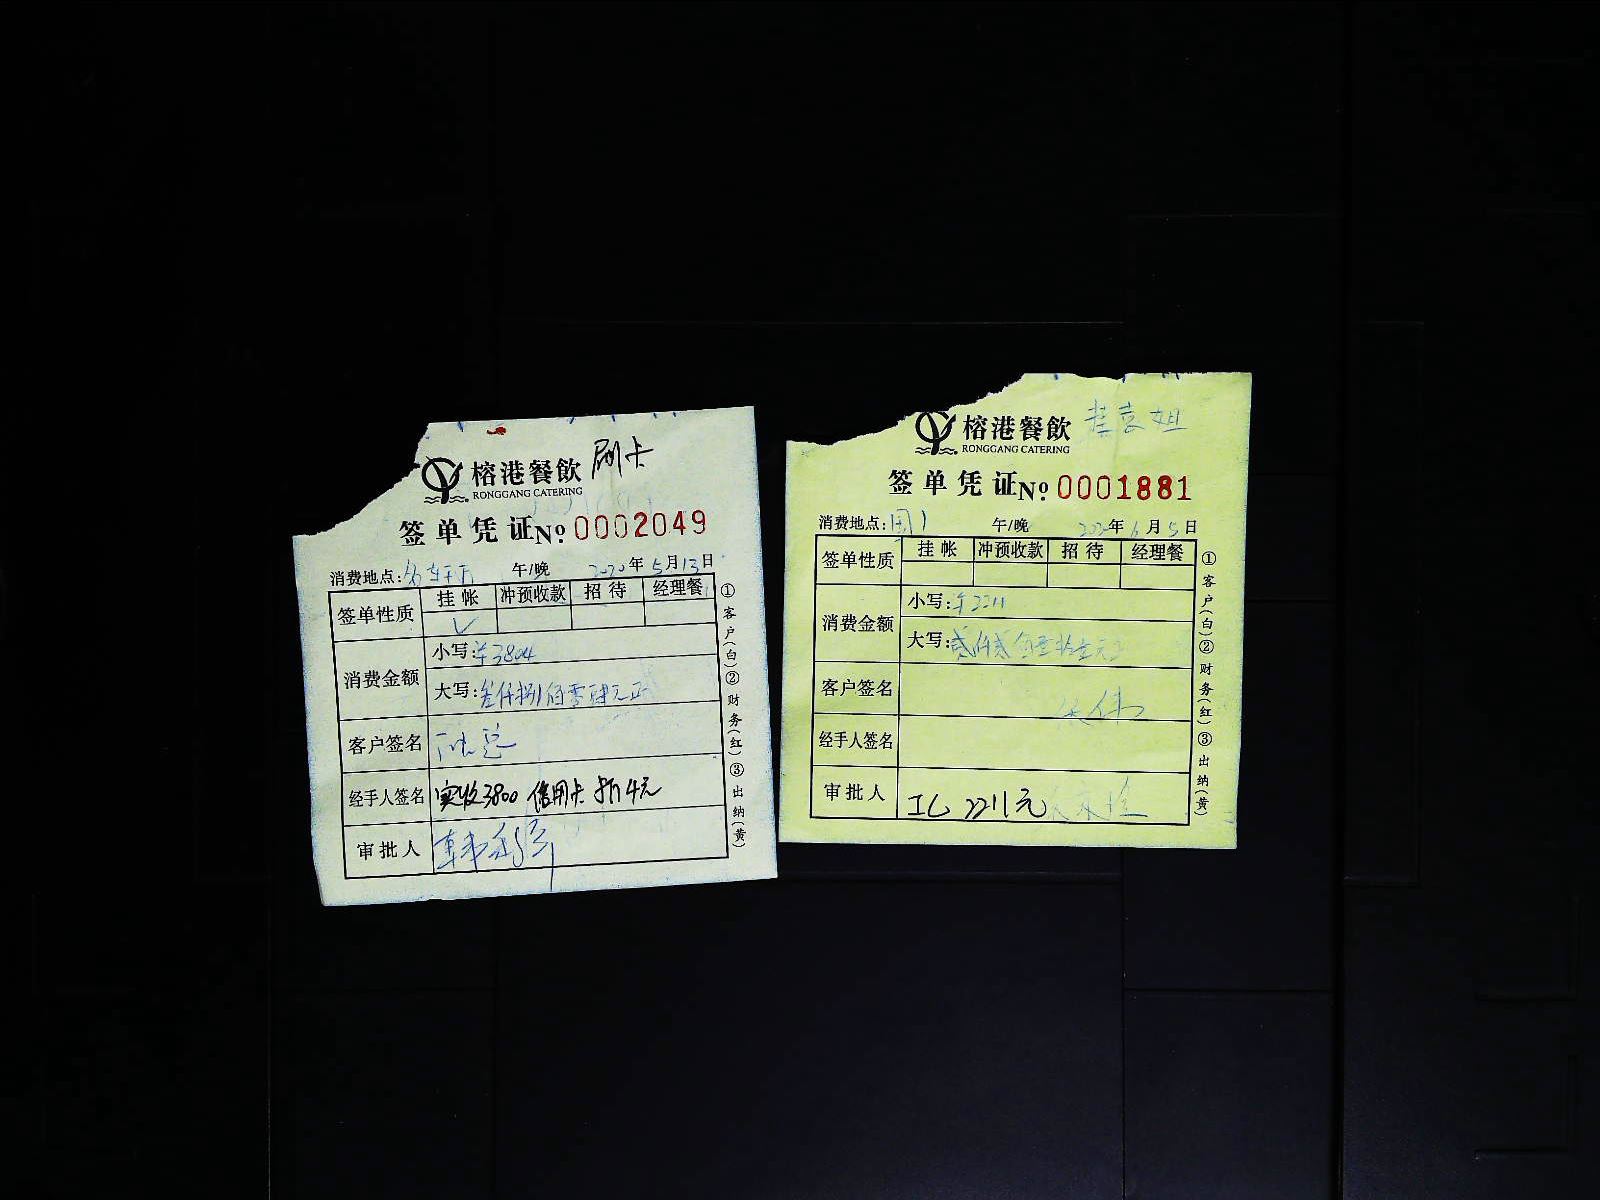 刷卡
榕港餐飲
RONGGANG CATERING
签单凭证 № 0002049
消费地点: 轩 午/晚 2020年5月13日
签单性质 挂帐 冲预收款 招待 经理餐
✓
消费金额 小写:¥3804
大写:叁仟捌佰零肆元正
客户签名 陈总
经手人签名 实收3800 信用卡 折4元
审批人 韩
①客户(白)②财务(红)③出纳(黄)
榕港餐飲
RONGGANG CATERING
签单凭证 № 0001881
消费地点: 午/晚 2020年6月5日
签单性质 挂帐 冲预收款 招待 经理餐
消费金额 小写:¥2211
大写:贰仟贰佰壹拾壹元正
客户签名 伟
经手人签名
审批人 2211元
①客户(白)②财务(红)③出纳(黄)